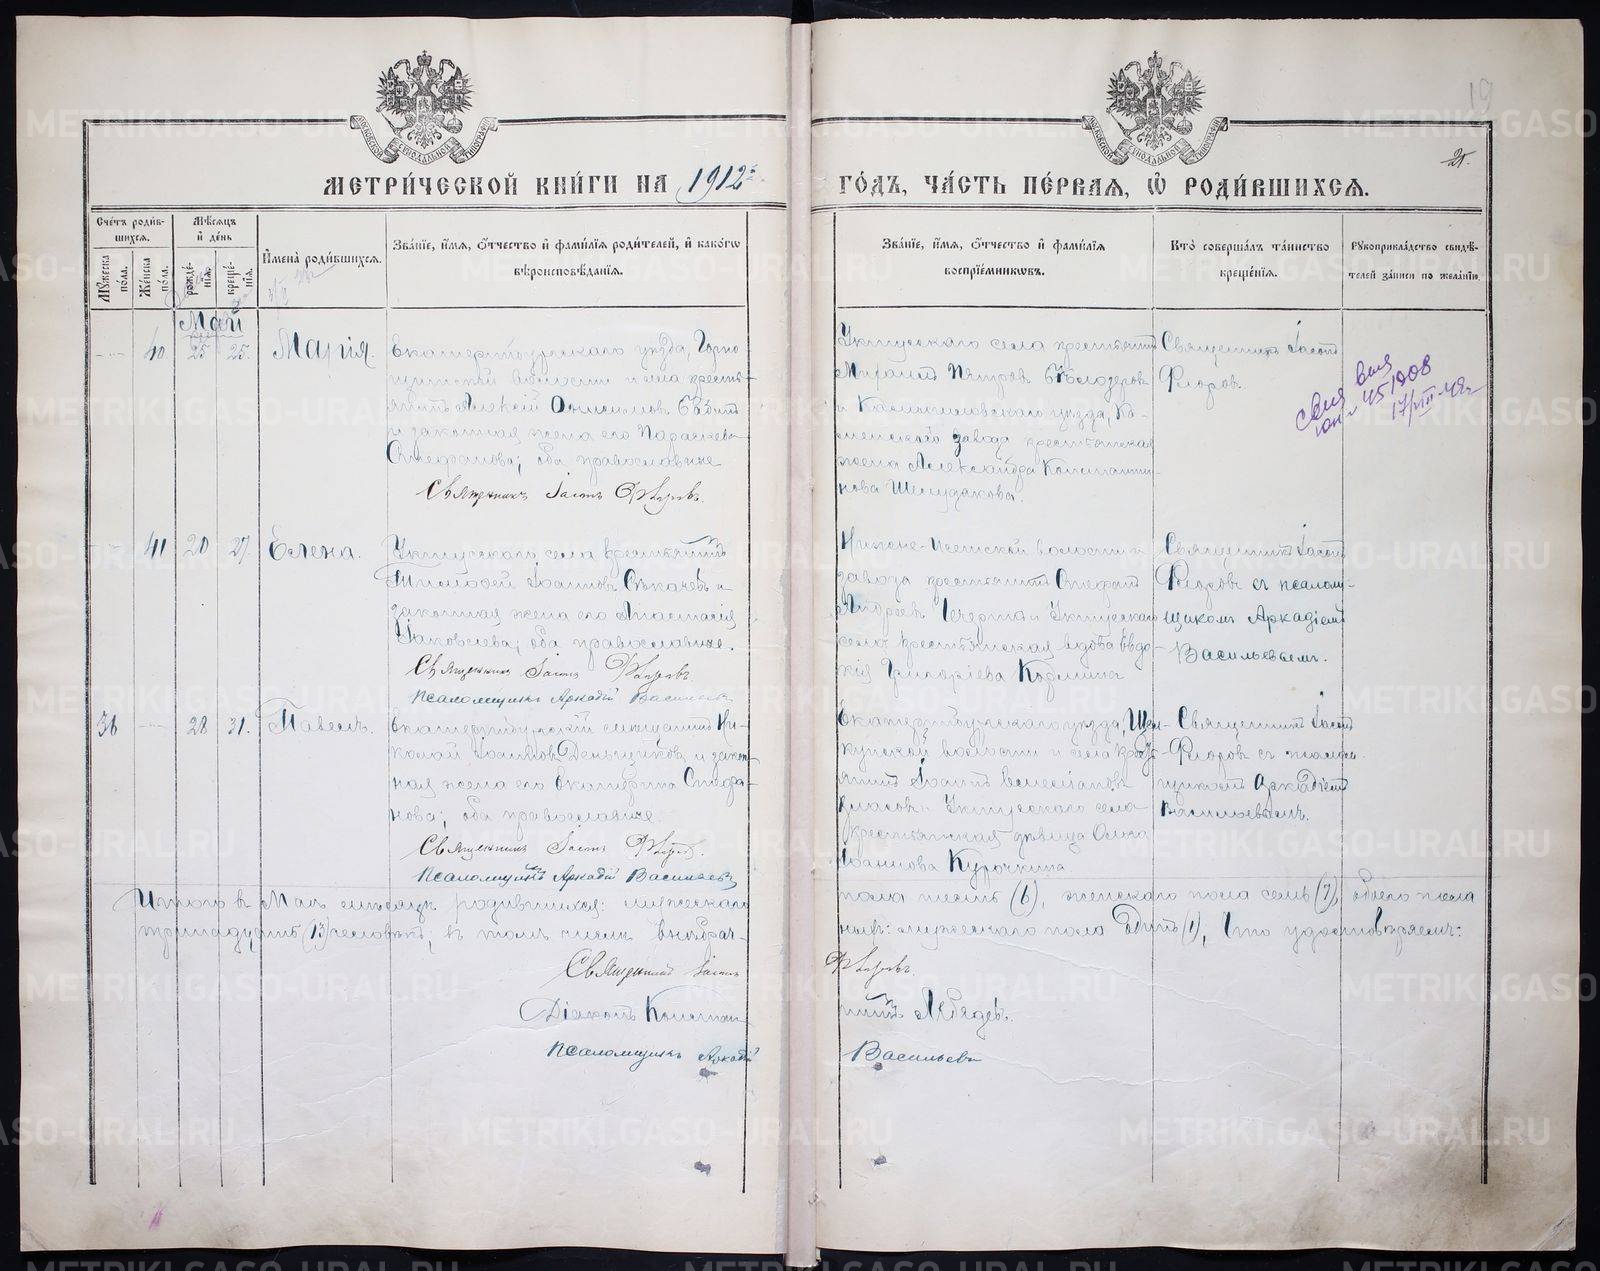 МОСКОВСКОЙ СѴНОДАЛЬНОЙ ТИПОГРАФІИ
МОСКОВСКОЙ СѴНОДАЛЬНОЙ ТИПОГРАФІИ
19
21.
МЕТРИ́ЧЕСКОЙ КНИ́ГИ НА 1912 ГО́ДЪ, ЧА́СТЬ ПЕ́РВАѦ, Ѽ РОДИ́ВШИХСѦ.
Сче́тъ роди́в-
шихсѧ.
Мꙋ́жеска по́ла.
Же́нска по́ла.
Мѣ́сѧцъ
и҆ де́нь
рожде́-
нїѧ.
креще́-
нїѧ.
И҆мена̀ роди́вшихсѧ.
Зва́нїе, и҆́мѧ, ѻ҆́тчество и҆ фами́лїѧ роди́телей, и҆ како́гѡ
вѣроисповѣ́данїѧ.
Зва́нїе, и҆́мѧ, ѻ҆́тчество и҆ фами́лїѧ
воспрїе́мникѡвъ.
Кто̀ соверша́лъ та́инство
креще́нїѧ.
Рꙋкоприкла́дство свидѣ́-
телей за́писи по жела́нїю.
Май
40 25 25. Марія.
Екатеринбургскаго уѣзда, Горно-
щитской волости и села кресть-
янинъ Алексій
и законная жена его Параскева
Стефанова; оба православные
Священникъ Іасонъ Флоровъ.
Уктусскаго села крестьянинъ
Петровъ
и Камышловскаго уѣзда, Ка-
менскаго завода крестьянская
жена Александра Константи-
нова
Священникъ Іасонъ
Флоровъ.
45/908
17/VIII-48г
41 20 27. Елена.
Уктусскаго села крестьянинъ
Тимофей Іоанновъ и
законная жена его Анастасія
Іаковлева; оба православные.
Священникъ Іасонъ Флоровъ
Псаломщикъ Аркадій Васильевъ
Нижне-Исетской волости и
завода крестьянинъ Стефанъ
Андреевъ и Уктусскаго
села крестьянская вдова Евдо-
кія Григоріева
Священникъ Іасонъ
Флоровъ съ псалом-
щикомъ Аркадіемъ
Васильевымъ.
36 28 31. Павелъ.
Екатеринбургскій мѣщанинъ Ни-
колай Іоанновъ Деньщиковъ и закон-
ная жена его Екатерина Стефа-
нова; оба православные.
Священникъ Іасонъ Флоровъ.
Псаломщикъ Аркадій Васильевъ
Екатеринбургскаго уѣзда,
волости и села кресть-
янинъ Іоаннъ
Власовъ и Уктусскаго села
крестьянская дѣвица Анна
Іоаннова Курочкина
Священникъ Іасонъ
Флоровъ съ псалом-
щикомъ Аркадіемъ
Васильевымъ.
Итого въ Маѣ мѣсяцѣ родившихся: мужескаго пола шесть (6), женскаго пола семь (7), обоего пола
тринадцать (13) человѣкъ, въ томъ числѣ внѣбрач- ныхъ: мужескаго пола одинъ (1), Что удостовѣряемъ:
Священникъ Іасонъ Флоровъ.
Діаконъ Констан- тинъ Лебедевъ.
Псаломщикъ Аркадій Васильевъ
METRIKI.GASO-URAL.RU